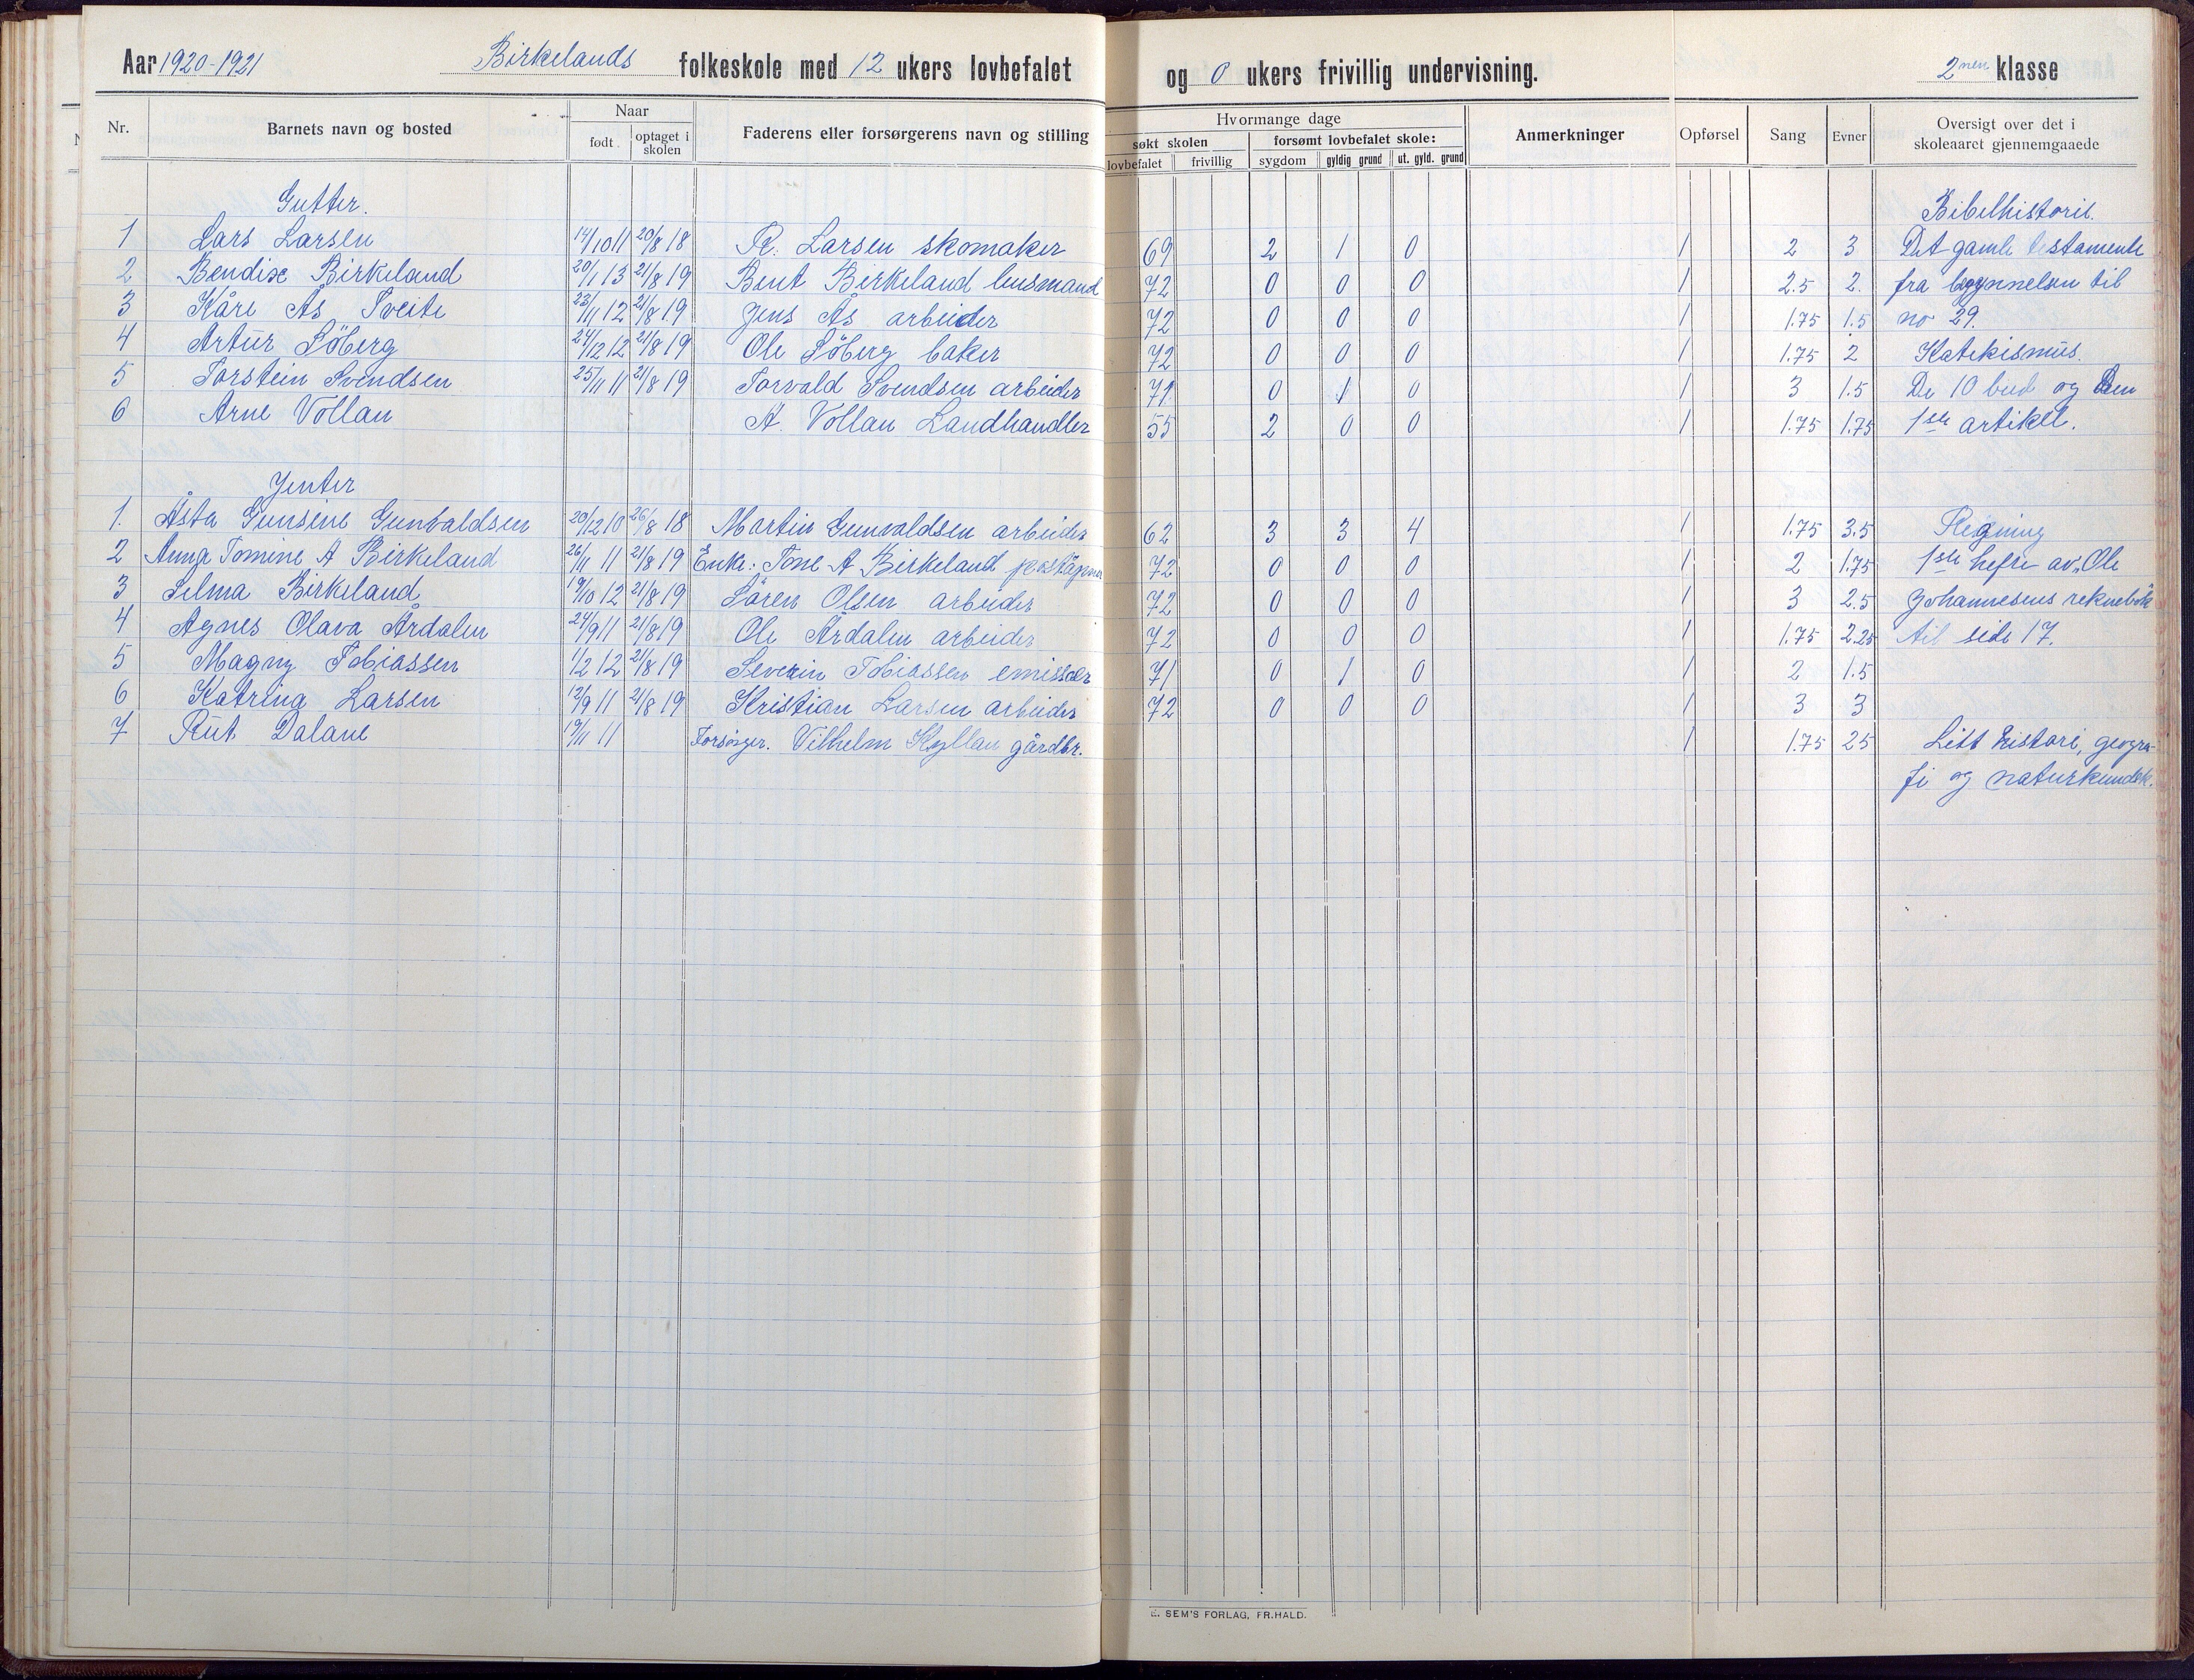 Aar 1920-1921 Birkelands folkeskole med 12 ukers lovbefalet og 0 ukers frivillig undervisning. 2nen klasse
Nr. Barnets navn og bosted Naar født optaget i skolen Faderens eller forsørgerens navn og stilling Hvormange dage søkt skolen lovbefalet frivillig forsømt lovbefalet skole: sygdom gyldig grund ut. gyld. grund Anmerkninger Opførsel Sang Evner Oversigt over det i skoleaaret gjennemgaaede
Gutter. Bibelhistorie.
1 Lars Larsen 14/10 11 20/8 18 R. Larsen skomaker 69 2 1 0 1 2 3 Det gamle testamente
2 Bendix Birkeland 20/1 13 21/8 19 Bent Birkeland lensmand 72 0 0 0 1 2.5 2. fra begynnelsen til
3 Kåre Ås Tveite 23/11 12 21/8 19 Jens Ås arbeider 72 0 0 0 1 1.75 1.5 no 29.
4 Artur Söberg 24/12 12 21/8 19 Ole Söberg baker 72 0 0 0 1 1.75 2 Katekismus.
5 Torstein Svendsen 25/11 11 21/8 19 Torvald Svendsen arbeider 71 0 1 0 1 3 1.5 De 10 bud og den
6 Arne Vollan A. Vollan Landhandler 55 2 0 0 1 1.75 1.75 1ste artikel.
Jenter
1. Åsta Gunsine Gunvaldsen 20/12 10 26/8 18 Martin Gunvaldsen arbeider 62 3 3 4 1 1.75 3.5 Regning
2 Anna Tomine A Birkeland 26/11 11 21/8 19 Enke: Tone A Birkeland 72 0 0 0 1 2 1.75 1ste hefte av "Ole
3 Selma Birkeland 19/10 12 21/8 19 Sören Olsen arbeider 72 0 0 0 1 3 2.5 Johannesens reknebok
4 Agnes Olava Årdalen 24/9 11 21/8 19 Ole Årdalen arbeider 72 0 0 0 1 1.75 2.25 til side 17.
5 Magny Tobiassen 1/2 12 21/8 19 Severin Tobiassen emissær 71 0 1 0 1 2 1.5
6 Katrina Larsen 12/9 11 21/8 19 Kristian Larsen arbeider 72 0 0 0 1 3 3
7 Rut Dalane 19/11 11 Forsörger. Vilhelm gårdbr. 1 1.75 25 Litt historie, geogra-
fi og naturkundsk.
E. SEM'S FORLAG, FR.HALD.